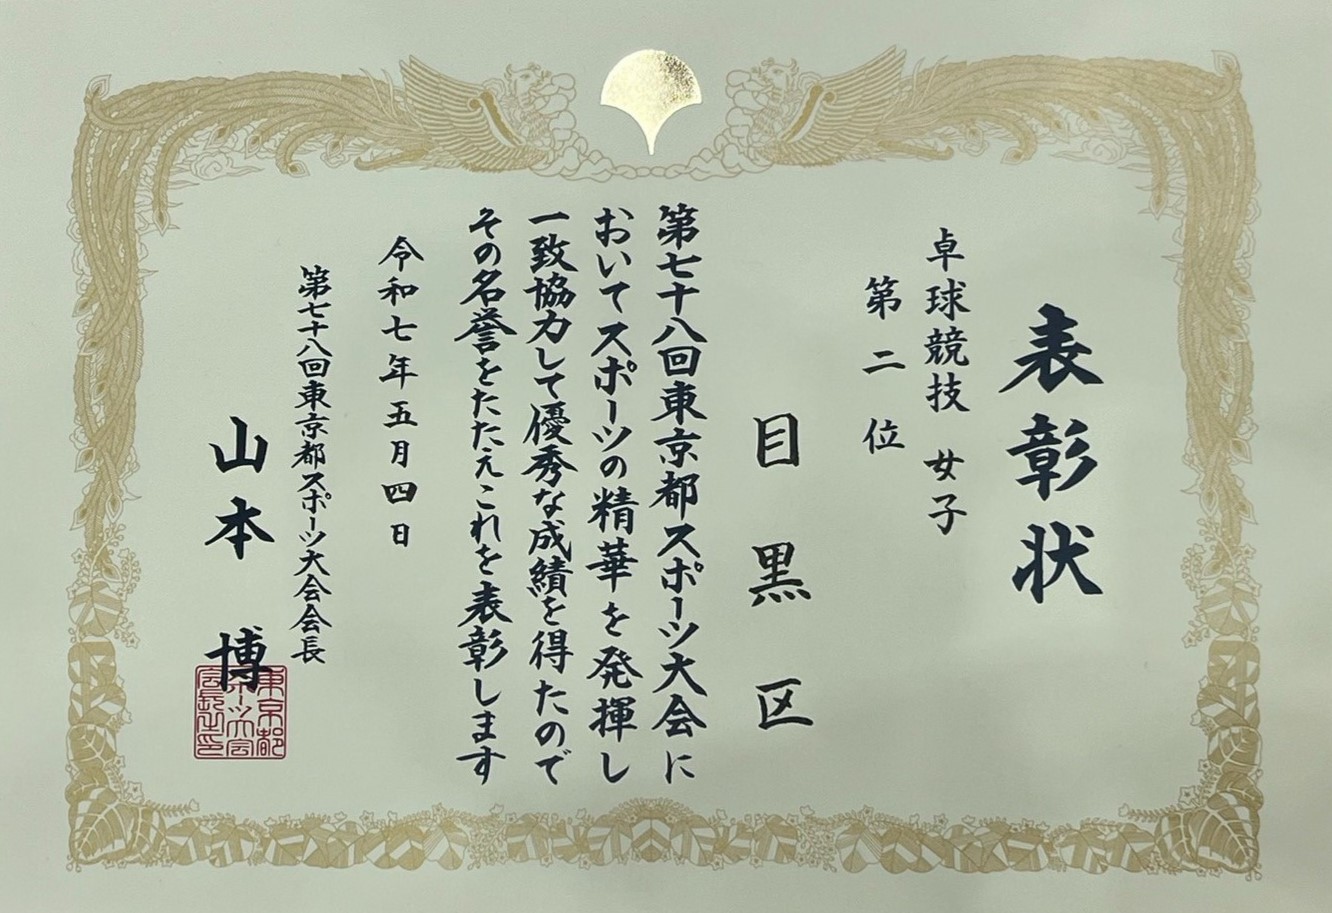 表彰状
卓球競技 女子
第二位
目黒区
第七十八回東京都スポーツ大会に
おいてスポーツの精華を発揮し
一致協力して優秀な成績を得たので
その名誉をたたえこれを表彰します
令和七年五月四日
第七十八回東京都スポーツ大会会長
山本 博
東京都
スポーツ大会
会長之印